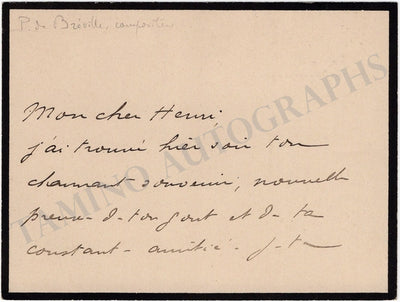 P. de Bréville, compositeur
Mon cher Henri,
j'ai trouvé hier soir ton
charmant souvenir, nouvelle
preuve de ton gout et de ta
constante amitié. Je te
TAMINO AUTOGRAPHS